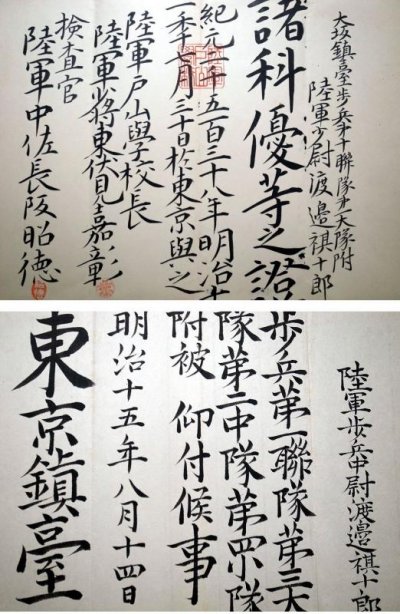 大坂鎮臺歩兵第十聯隊第大隊附
陸軍少尉渡邊祺十郎
諸科優等之證
紀元二千五百三十八年明治十
一年十月三十日於東京與之
陸軍戸山學校長
陸軍少將東伏見嘉彰
検査官
陸軍中佐長阪昭徳
陸軍歩兵中尉渡邊祺十郎
歩兵第一聯隊第三大
隊第二中隊第四小隊
附被 仰付候事
明治十五年八月十四日
東京鎮臺